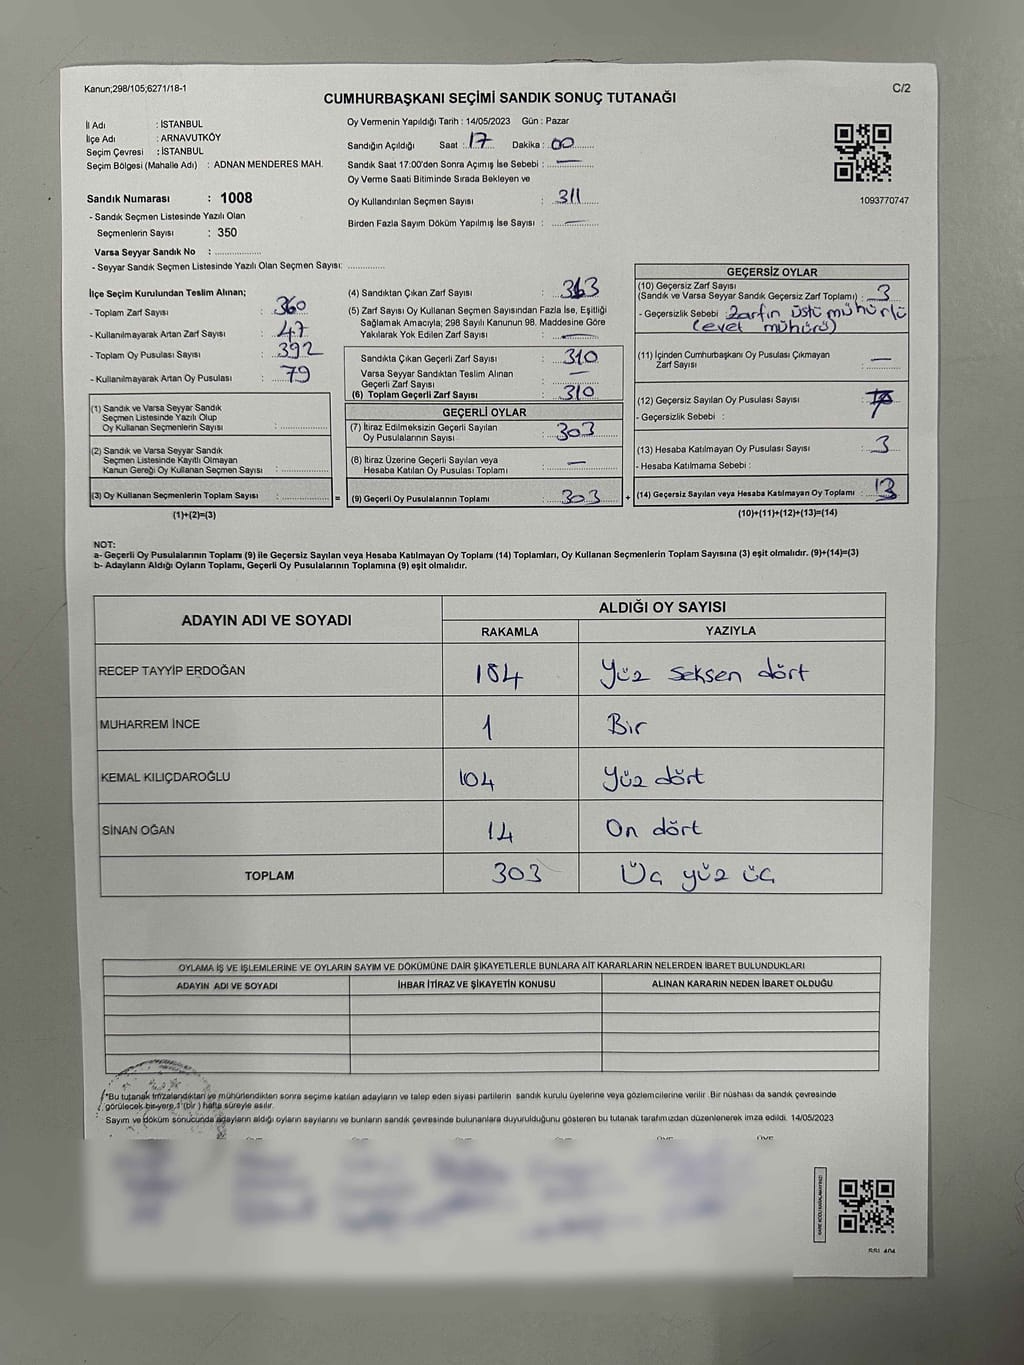 Kanun;298/105;6271/18-1
C/2
CUMHURBAŞKANI SEÇİMİ SANDIK SONUÇ TUTANAĞI
İl Adı : İSTANBUL
İlçe Adı : ARNAVUTKÖY
Seçim Çevresi : İSTANBUL
Seçim Bölgesi (Mahalle Adı) : ADNAN MENDERES MAH.
Sandık Numarası : 1008
- Sandık Seçmen Listesinde Yazılı Olan
Seçmenlerin Sayısı : 350
Varsa Seyyar Sandık No : ..............
- Seyyar Sandık Seçmen Listesinde Yazılı Olan Seçmen Sayısı: ............
Oy Vermenin Yapıldığı Tarih : 14/05/2023 Gün : Pazar
Sandığın Açıldığı Saat : 17 Dakika : 00
Sandık Saat 17:00'den Sonra Açımış İse Sebebi : —
Oy Verme Saati Bitiminde Sırada Bekleyen ve
Oy Kullandırılan Seçmen Sayısı : 311
Birden Fazla Sayım Döküm Yapılmış İse Sayısı : —
1093770747
İlçe Seçim Kurulundan Teslim Alınan;
- Toplam Zarf Sayısı : 360
- Kullanılmayarak Artan Zarf Sayısı : 47
- Toplam Oy Pusulası Sayısı : 392
- Kullanılmayarak Artan Oy Pusulası : 79
(1) Sandık ve Varsa Seyyar Sandık
Seçmen Listesinde Yazılı Olup
Oy Kullanan Seçmenlerin Sayısı : ............
(2) Sandık ve Varsa Seyyar Sandık
Seçmen Listesinde Kayıtlı Olmayan
Kanun Gereği Oy Kullanan Seçmen Sayısı : ............
(3) Oy Kullanan Seçmenlerin Toplam Sayısı : ............ =
(1)+(2)=(3)
(4) Sandıktan Çıkan Zarf Sayısı : 313
(5) Zarf Sayısı Oy Kullanan Seçmen Sayısından Fazla İse, Eşitliği
Sağlamak Amacıyla; 298 Sayılı Kanunun 98. Maddesine Göre
Yakılarak Yok Edilen Zarf Sayısı : —
Sandıkta Çıkan Geçerli Zarf Sayısı : 310
Varsa Seyyar Sandıktan Teslim Alınan
Geçerli Zarf Sayısı : —
(6) Toplam Geçerli Zarf Sayısı : 310
GEÇERLİ OYLAR
(7) İtiraz Edilmeksizin Geçerli Sayılan
Oy Pusulalarının Sayısı : 303
(8) İtiraz Üzerine Geçerli Sayılan veya
Hesaba Katılan Oy Pusulası Toplamı : —
(9) Geçerli Oy Pusulalarının Toplamı : 303 +
GEÇERSİZ OYLAR
(10) Geçersiz Zarf Sayısı
(Sandık ve Varsa Seyyar Sandık Geçersiz Zarf Toplamı) : 3
- Geçersizlik Sebebi : Zarfın üstü mühürlü
(evet mühürü)
(11) İçinden Cumhurbaşkanı Oy Pusulası Çıkmayan
Zarf Sayısı : —
(12) Geçersiz Sayılan Oy Pusulası Sayısı :
- Geçersizlik Sebebi :
(13) Hesaba Katılmayan Oy Pusulası Sayısı : 3
- Hesaba Katılmama Sebebi :
(14) Geçersiz Sayılan veya Hesaba Katılmayan Oy Toplamı : 13
(10)+(11)+(12)+(13)=(14)
NOT:
a- Geçerli Oy Pusulalarının Toplamı (9) ile Geçersiz Sayılan veya Hesaba Katılmayan Oy Toplamı (14) Toplamları, Oy Kullanan Seçmenlerin Toplam Sayısına (3) eşit olmalıdır. (9)+(14)=(3)
b- Adayların Aldığı Oyların Toplamı, Geçerli Oy Pusulalarının Toplamına (9) eşit olmalıdır.
ADAYIN ADI VE SOYADI
ALDIĞI OY SAYISI
RAKAMLA YAZIYLA
RECEP TAYYİP ERDOĞAN 184 Yüz seksen dört
MUHARREM İNCE 1 Bir
KEMAL KILIÇDAROĞLU 104 Yüz dört
SİNAN OĞAN 14 On dört
TOPLAM 303 Üç yüz üç
OYLAMA İŞ VE İŞLEMLERİNE VE OYLARIN SAYIM VE DÖKÜMÜNE DAİR ŞİKAYETLERLE BUNLARA AİT KARARLARIN NELERDEN İBARET BULUNDUKLARI
ADAYIN ADI VE SOYADI İHBAR İTİRAZ VE ŞİKAYETİN KONUSU ALINAN KARARIN NEDEN İBARET OLDUĞU
*Bu tutanak imzalandıktan ve mühürlendikten sonra seçime katılan adayların ve talep eden siyasi partilerin sandık kurulu üyelerine veya gözlemcilerine verilir. Bir nüshası da sandık çevresinde
görülecek bir yere 1 (bir ) hafta süreyle asılır.
Sayım ve döküm sonucunda adayların aldığı oyların sayılarını ve bunların sandık çevresinde bulunanlara duyurulduğunu gösteren bu tutanak tarafımızdan düzenlenerek imza edildi. 14/05/2023